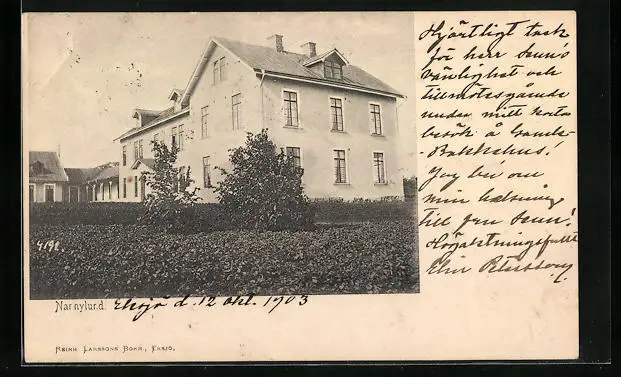 Hjärtligt tack
för herr Sunn's
vänlighet och
tillmötesgående
under mitt korta
besök å Gamla-
-Bakkehus!
Jag ber om
min helsning
till fru Sunn!
Högaktningsfullt
Elin
4192
Narrnylund. Eksjö d. 12 okt. 1903
REINH LARSSONS BOKH., EKSJÖ.